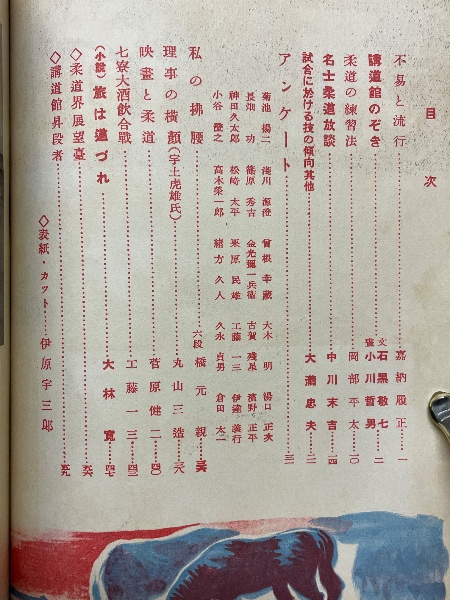 目次
不易と流行……嘉納履正…一
講道館のぞき……文 石黒敬七 畫 小川哲男…二
柔道の練習法……岡部平太…一〇
名士柔道放談……中川末吉…一四
試合に於ける技の傾向其他……大瀧忠夫…二二
アンケート……三二
菊池揚二 淺川源澄 曾根幸藏 大木明 湯口正次
長畑功 篠原秀吉 金光彌一兵衛 古賀殘星 濱野正平
神田久太郎 松崎太平 栗原民雄 工藤一三 伊達義行
小谷澄之 高木榮一郎 緒方久人 久永貞男 倉田太一
私の拂腰……六段 橋元親…三六
理事の橫顏(宇土虎雄氏)……丸山三造…三八
映畫と柔道……菅原健二…四〇
七寮大酒飮合戰……工藤一三…四三
(小説)旅は道づれ……大林寛…四七
◇柔道界展望臺……五六
◇講道館昇段者……五九
◇表紙・カット……伊原宇三郎